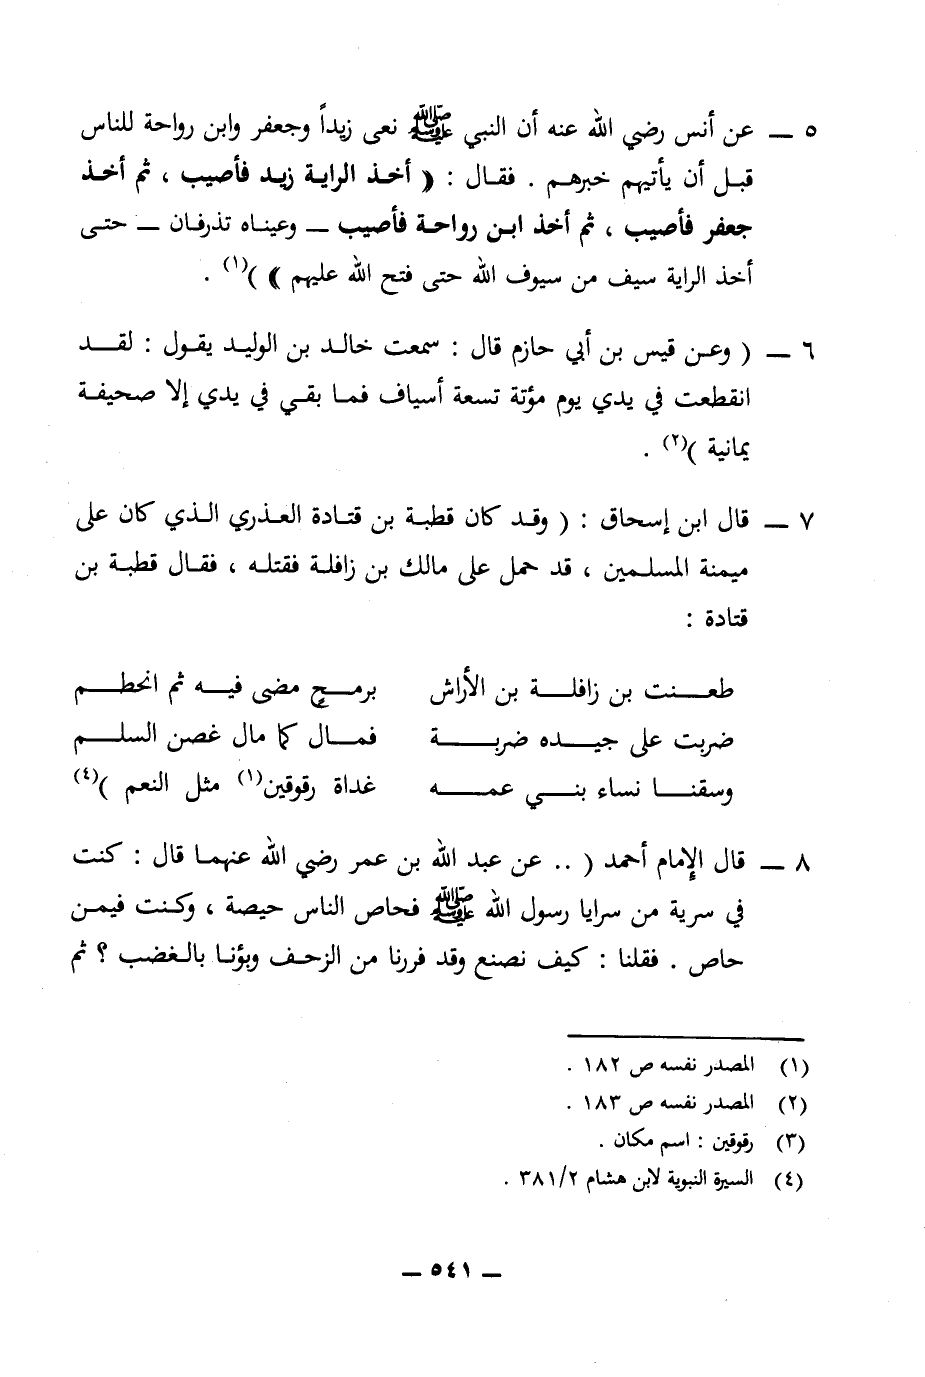 ٥ ــ عن أنس رضي الله عنه أن النبي ﷺ نعى زيداً وجعفر وابن رواحة للناس
قبل أن يأتيهم خبرهم . فقال : ﴿ أخذ الراية زيد فأصيب ، ثم أخذ
جعفر فأصيب ، ثم أخذ ابن رواحة فأصيب ــ وعيناه تذرفان ــ حتى
أخذ الراية سيف من سيوف الله حتى فتح الله عليهم ﴾ )(١) .
٦ ــ ( وعن قيس بن أبي حازم قال : سمعت خالد بن الوليد يقول : لقد
انقطعت في يدي يوم مؤتة تسعة أسياف فما بقي في يدي إلا صحيفة
يمانية )(٢) .
٧ ــ قال ابن إسحاق : ( وقد كان قطبة بن قتادة العذري الذي كان على
ميمنة المسلمين ، قد حمل على مالك بن زافلة فقتله ، فقال قطبة بن
قتادة :
طعنت بن زافلة بن الأراش برمح مضى فيه ثم انحطم
ضربت على جيده ضربة فمال كما مال غصن السلم
وسقنا نساء بني عمه غداة رقوقين(١) مثل النعم )(٤)
٨ ــ قال الإمام أحمد ( .. عن عبد الله بن عمر رضي الله عنهما قال : كنت
في سرية من سرايا رسول الله ﷺ فحاص الناس حيصة ، وكنت فيمن
حاص . فقلنا : كيف نصنع وقد فررنا من الزحف وبؤنا بالغضب ؟ ثم
(١) المصدر نفسه ص ١٨٢ .
(٢) المصدر نفسه ص ١٨٣ .
(٣) رقوقين : اسم مكان .
(٤) السيرة النبوية لابن هشام ٣٨١/٢ .
ــ ٥٤١ ــ